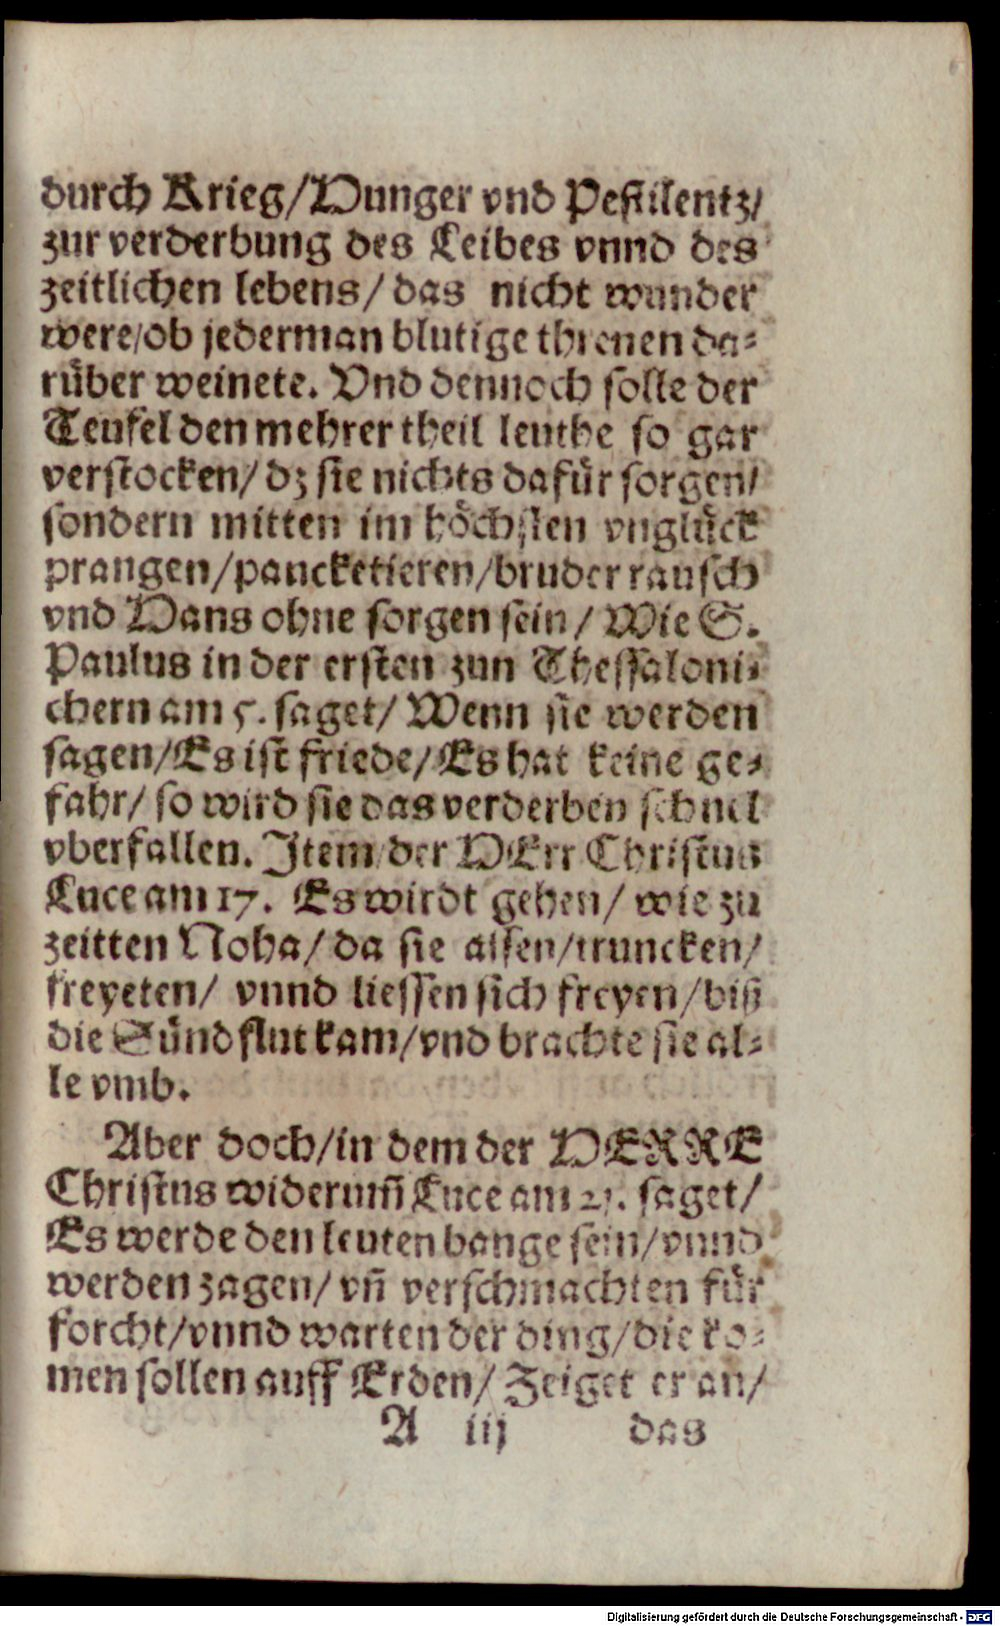 durch Krieg/Hunger vnd Pestilentz/
zur verderbung des Leibes vnnd des
zeitlichen lebens/ das nicht wunder
were/ob jederman blutige threnen da⸗
rüber weinete. Vnd dennoch solle der
Teufel den mehrer theil leuthe so gar
verstocken/ dz sie nichts dafür sorgen/
sondern mitten im höchsten vnglück
prangen/pancketieren/bruder rausch
vnd Hans ohne sorgen sein/ Wie S.
Paulus in der ersten zun Thessaloni⸗
chern am 5. saget/ Wenn sie werden
sagen/Es ist friede/Es hat keine ge⸗
fahr/ so wird sie das verderben schnel
vberfallen. Item/der HErr Christus
Luce am 17. Es wirdt gehen/ wie zu
zeitten Noha/ da sie assen/truncken/
freyeten/ vnnd liessen sich freyen/biß
die Sündflut kam/vnd brachte sie al⸗
le vmb.
Aber doch/in dem der HERRE
Christus widerum̃ Luce am 21. saget/
Es werde den leuten bange sein/vnnd
werden zagen/ vñ verschmachten für
forcht/vnnd warten der ding/die ko⸗
men sollen auff Erden/ Zeiget er an/
A iij das
Digitalisierung gefördert durch die Deutsche Forschungsgemeinschaft - DFG